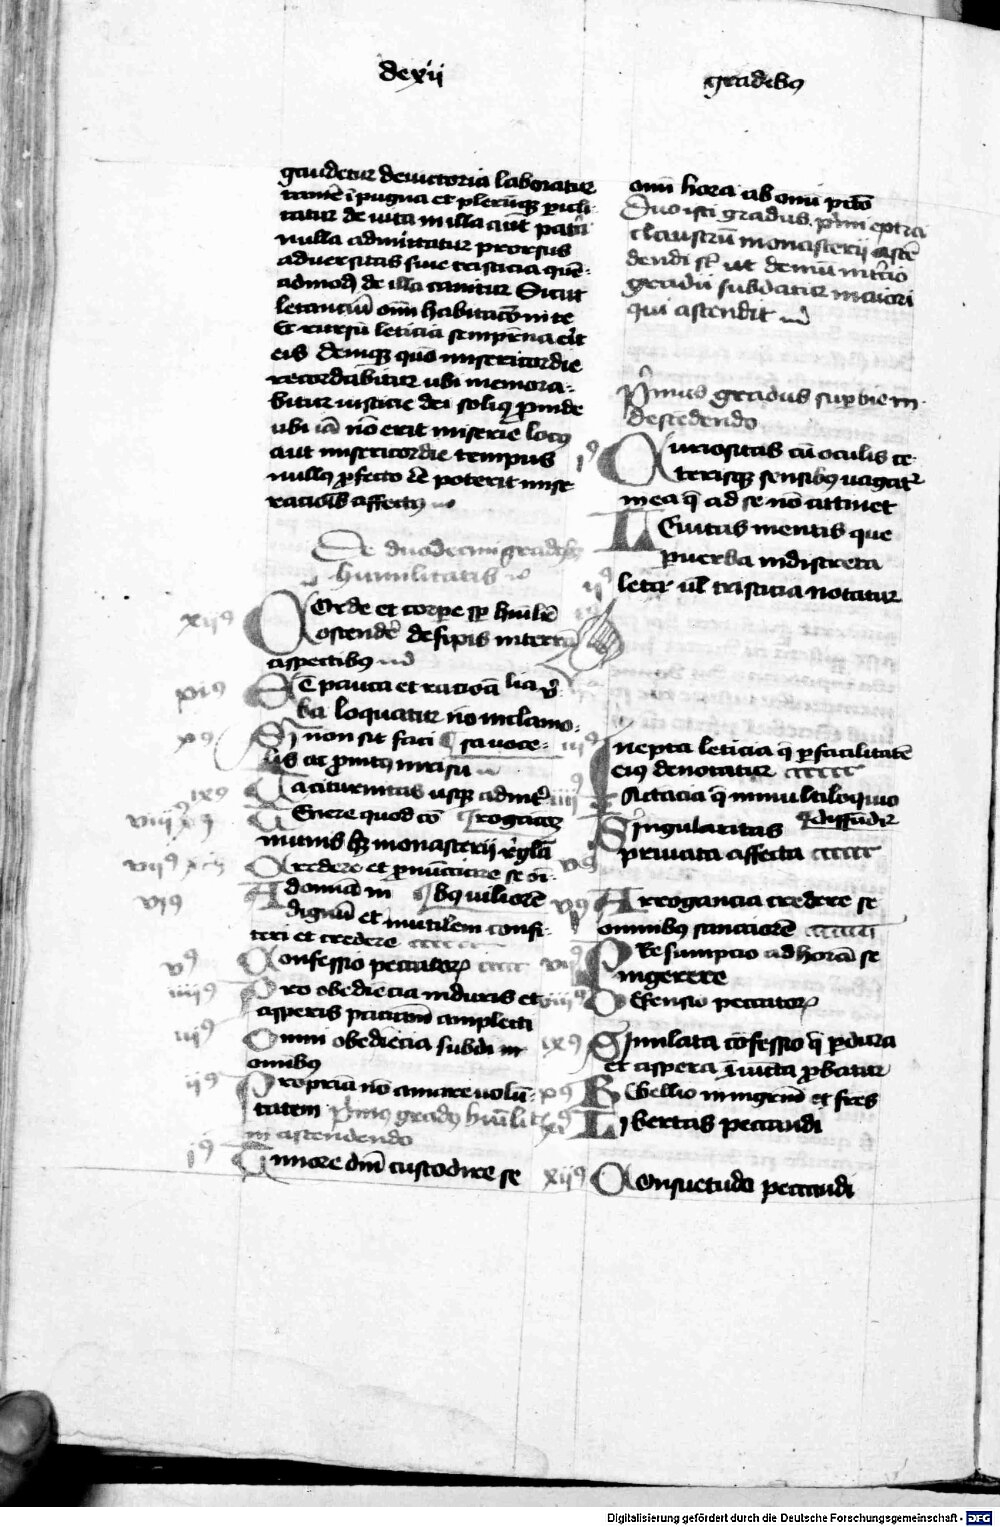 de xii
gradibus
gaudetur de victoria laboratur
tamē ī pugna et plerūq; picli-
tatur de vita in illa aūt patia
nulla admittatur prorsus
adversitas sive tristicia quē-
admodū de illa canitur Sicut
letanciū oīm habitacō in te
Et rursū leticia sempīna erit
eis Deniq; quō misericordie
recordabitur ubi memora-
bitur iusticie dei solius proinde
ubi iā nō erit miserie locus
aut misericordie tempus
nullus pfecto eē poterit mise
racionis affectus
De duodecim gradibus
humilitatis
xii9 Corde et corpore sp humilē
ostendere defixis in terrā
aspectibus
xi9 Et pauca et racionalia ver-
ba loquatur nō in clamo-
x9 Si non sit faci sa voce-
lis et promptus in risu
ix9 Taciturnitas usq; ad int
viii9 Tenere quod cō rogacōz
munis hz monasterii regula
vii9 Credere et pronūciare se oī-
vi9 Ad omnia in bus viliorē
dignū et inutilem confi-
teri et credere
v9 Confessio peccatorum
iiii9 Pro obediencia in duris et
asperis pacienciam amplecti
iii9 Omni obediēcia subdi m
omnibus
ii9 Propriā nō amare volū-
tatem primus gradus humilit
in ascendendo
i9 Timore dnī custodire se
omni hora ab omni pctō
Duo isti gradus primi extra
claustrū monasterii ascē
dendi sūt ut demū in tercio
gradu subdatur maiori
qui ascendit
Primus gradus superbie in
descendendo
i9 Curiositas cū oculis ce-
terisq; sensibus vagatur
in ea q ad se nō attinet
Levitas mentis que
p verba indiscreta
ii9 leta vl tristicia notatur
iii9 Inepta leticia q p facilitatē
eius denotatur
iiii9 Iactācia q in multiloquio
diffunditur
v9 Singularitas
privata affecta
vi9 Arrogancia credere se
omnibus sanctiorē
vii9 Presumpcio ad horā se
ingerere
viii9 Defensio peccatorum
ix9 Simulata cōfessio q p dura
et aspera īiūcta probatur
x9 Rebellio in mgrm et frēs
xi9 Libertas peccandi
xii9 Consuetudo peccandi
Digitalisierung gefördert durch die Deutsche Forschungsgemeinschaft - DFG